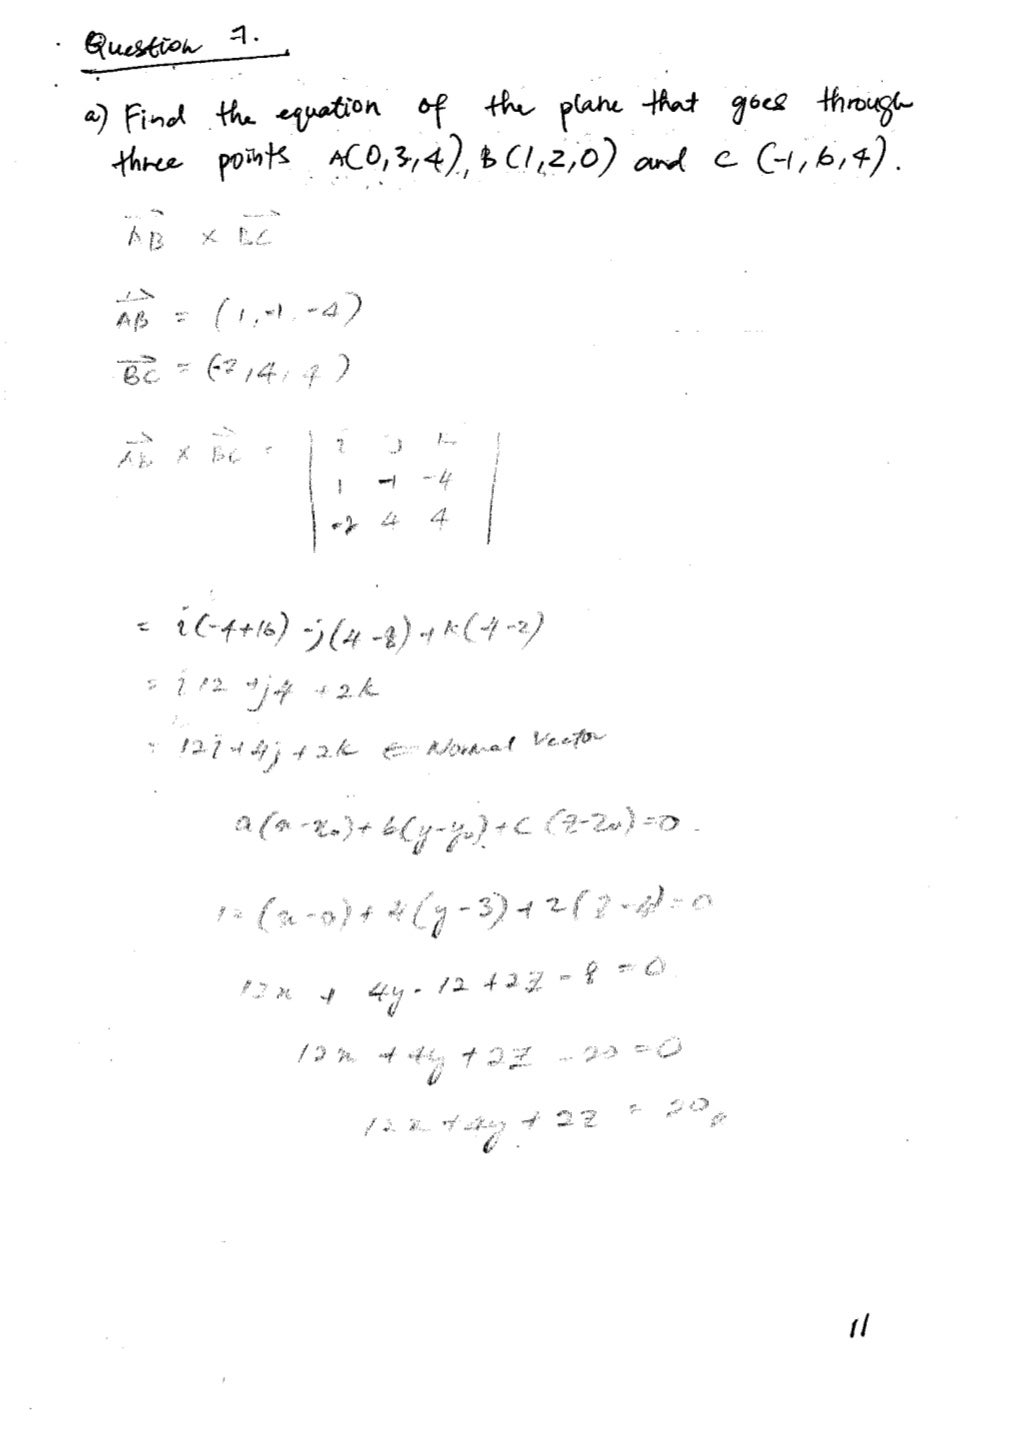 Question 7.
a) Find the equation of the plane that goes through
three points A(0,3,4), B(1,2,0) and C (-1,6,4).
AB × BC
AB = (1,-1,-4)
BC = (-2,4,4)
AB × BC = | i j k
1 -1 -4
-2 4 4 |
= i(-4+16) -j(4-8)+k(4-2)
= i12 +j4 +2k
= 12i+4j+2k ← Normal Vector
a(x-x₀)+b(y-y₀)+c(z-z₀)=0.
12(x-0)+4(y-3)+2(z-4)=0
12x + 4y-12+2z-8=0
12x+4y+2z-20=0
12x+4y+2z = 20
11